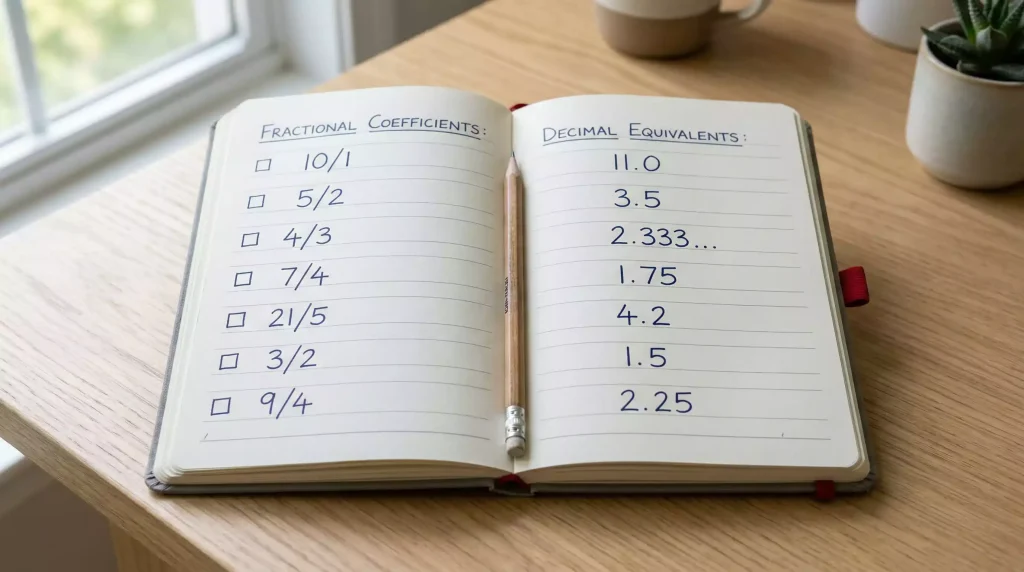 FRACTIONAL COEFFICIENTS:
☐ 10/1
☐ 5/2
☐ 4/3
☐ 7/4
☐ 21/5
☐ 3/2
☐ 9/4
DECIMAL EQUIVALENTS:
11.0
3.5
2.333...
1.75
4.2
1.5
2.25